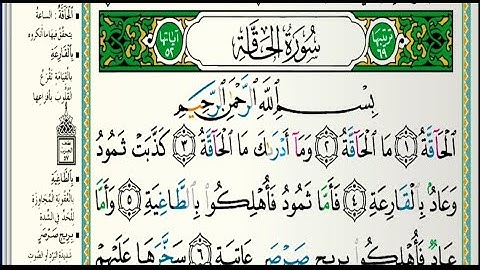 ترتيبها ٦٩
سُورَةُ الحَاقَّة
آياتها ٥٢
بِسْمِ ٱللَّهِ ٱلرَّحْمَٰنِ ٱلرَّحِيمِ
ٱلْحَآقَّةُ ١ مَا ٱلْحَآقَّةُ ٢ وَمَآ أَدْرَىٰكَ مَا ٱلْحَآقَّةُ ٣ كَذَّبَتْ ثَمُودُ
وَعَادٌۢ بِٱلْقَارِعَةِ ٤ فَأَمَّا ثَمُودُ فَأُهْلِكُوا۟ بِٱلطَّاغِيَةِ ٥ وَأَمَّا
عَادٌ فَأُهْلِكُوا۟ بِرِيحٍ صَرْصَرٍ عَاتِيَةٍ ٦ سَخَّرَهَا عَلَيْهِمْ
الْحَاقَّةُ : الساعة
يتحقق فيها ما أنكروه
بِالْقَارِعَةِ
بالقيامة تَقْرَعُ
القلوب بأفزاعها
بِالطَّاغِيَةِ
بالعقوبة المجاوزة
للحد في الشدة
بِرِيحٍ صَرْصَرٍ
شديدة البرد أو الصوت